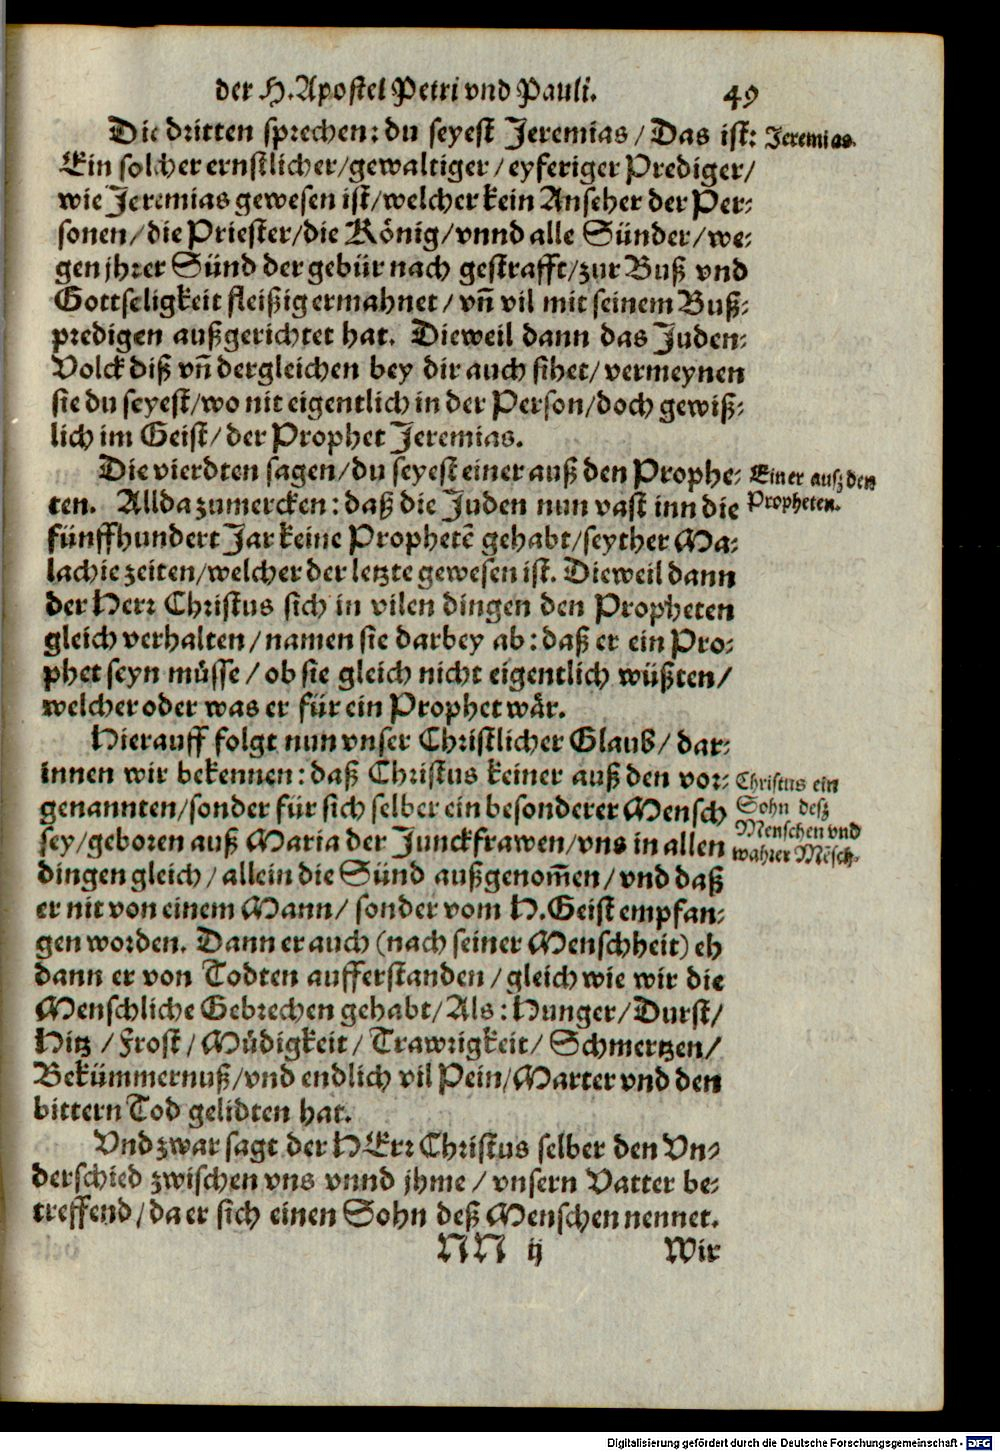 der H. Apostel Petri vnd Pauli. 49
Die dritten sprechen: du seyest Jeremias / Das ist:
Jeremias.
Ein solcher ernstlicher / gewaltiger / eyferiger Prediger /
wie Jeremias gewesen ist / welcher kein Anseher der Per-
sonen / die Priester / die König / vnnd alle Sünder / we-
gen jhrer Sünd der gebür nach gestrafft / zur Buß vnd
Gottseligkeit fleißig ermahnet / vñ vil mit seinem Buß-
predigen außgerichtet hat. Dieweil dann das Juden-
Volck diß vñ dergleichen bey dir auch sihet / vermeynen
sie du seyest / wo nit eigentlich in der Person / doch gewiß-
lich im Geist / der Prophet Jeremias.
Die vierdten sagen / du seyest einer auß den Prophe-
Einer auß den
ten. Allda zumercken: daß die Juden nun vast inn die
Propheten.
fünffhundert Jar keine Prophetẽ gehabt / seyther Ma-
lachie zeiten / welcher der letzte gewesen ist. Dieweil dann
der Herr Christus sich in vilen dingen den Propheten
gleich verhalten / namen sie darbey ab: daß er ein Pro-
phet seyn müsse / ob sie gleich nicht eigentlich wüßten /
welcher oder was er für ein Prophet wår.
Hierauff folgt nun vnser Christlicher Glaub / dar-
innen wir bekennen: daß Christus keiner auß den vor-
Christus ein
genannten / sonder für sich selber ein besonderer Mensch
Sohn deß
sey / geboren auß Maria der Junckfrawen / vns in allen
Menschen vnd
wahrer Mẽsch.
dingen gleich / allein die Sünd außgenom̃en / vnd daß
er nit von einem Mann / sonder vom H. Geist empfan-
gen worden. Dann er auch (nach seiner Menschheit) eh
dann er von Todten aufferstanden / gleich wie wir die
Menschliche Gebrechen gehabt / Als: Hunger / Durst /
Hitz / Frost / Müdigkeit / Trawrigkeit / Schmertzen /
Bekümmernuß / vnd endlich vil Pein / Marter vnd den
bittern Tod gelidten hat.
Vnd zwar sagt der HErr Christus selber den Vn-
derschied zwischen vns vnnd jhme / vnsern Vatter be-
treffend / da er sich einen Sohn deß Menschen nennet.
NN ij Wir
Digitalisierung gefördert durch die Deutsche Forschungsgemeinschaft - DFG